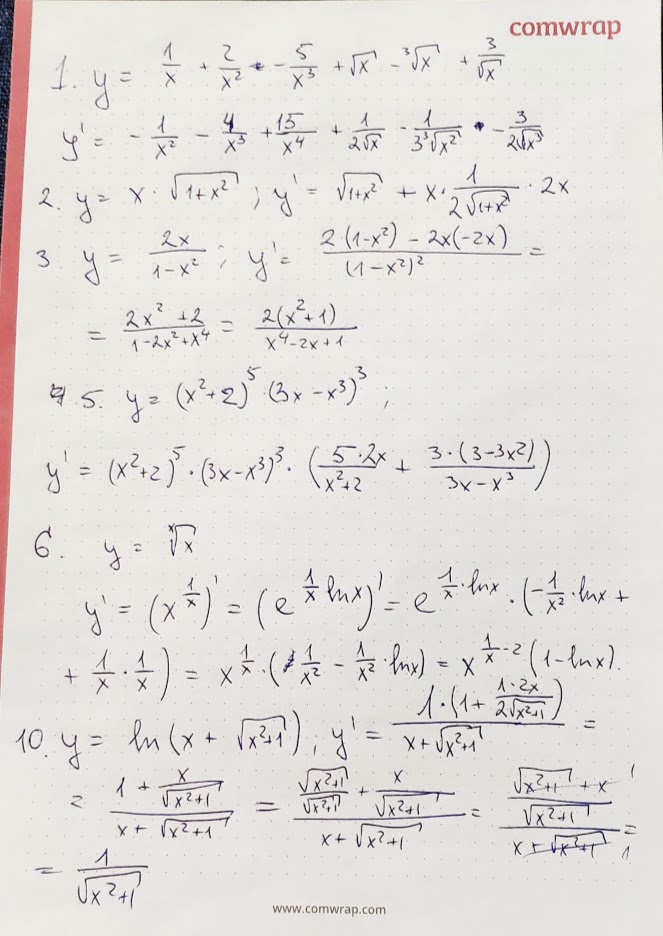 comwrap
1. y = 1/x + 2/x² - 5/x³ + √x - ³√x + 3/√x
y' = - 1/x² - 4/x³ + 15/x⁴ + 1/2√x - 1/3³√x² - 3/2√x³
2. y = x · √1+x² ; y' = √1+x² + x · 1/2√1+x² · 2x
3 y = 2x/1-x² ; y' = 2·(1-x²) - 2x(-2x)/(1-x²)² =
= 2x² + 2/1-2x²+x⁴ = 2(x²+1)/x⁴-2x+1
5. y = (x²+2)⁵·(3x-x³)³ ;
y' = (x²+2)⁵·(3x-x³)³·(5·2x/x²+2 + 3·(3-3x²)/3x-x³)
6. y = ˣ√x
y' = (x^1/x)' = (e^1/x lnx)' = e^1/x·lnx · (-1/x²·lnx +
+ 1/x · 1/x) = x^1/x · (1/x² - 1/x²·lnx) = x^1/x-2 (1-lnx).
10. y = ln(x + √x²+1) ; y' = 1·(1 + 1·2x/2√x²+1)/x+√x²+1 =
= 1 + x/√x²+1 / x+√x²+1 = √x²+1/√x²+1 + x/√x²+1 / x+√x²+1 = √x²+1 + x/√x²+1 / x+√x²+1 =
= 1/√x²+1
www.comwrap.com